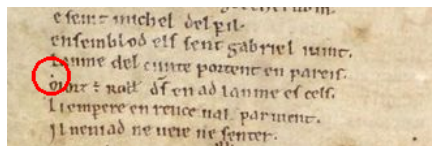 e seint michel del pil.
ensemblod els sent gabriel iuint.
Lanme del cunte portent en pareis.
Roll. ds en ad lanme es cels.
Li empere en rence ual paruient.
Il neniad ne ueie ne senter.